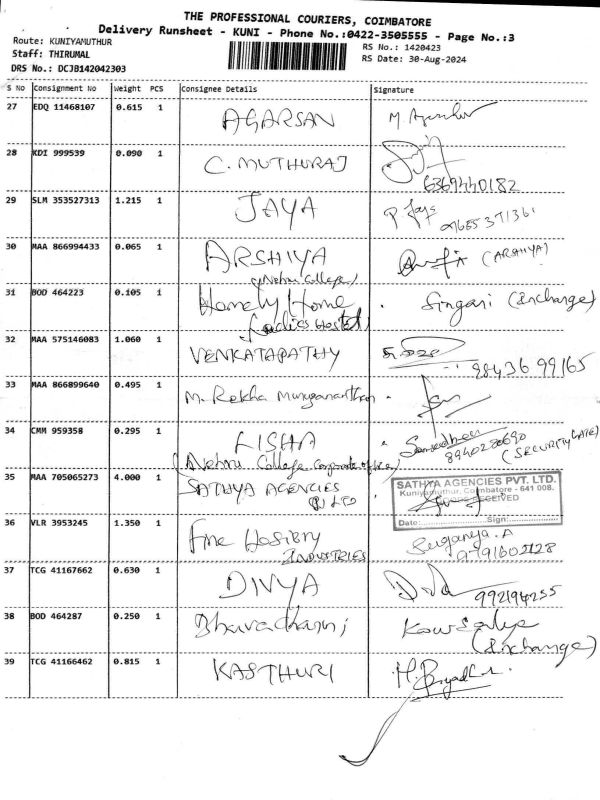 THE PROFESSIONAL COURIERS, COIMBATORE
Delivery Runsheet - KUNI - Phone No.:0422-3505555 - Page No.:3
Route: KUNIYAMUTHUR
Staff: THIRUMAL
DRS No.: DCJB142042303
RS No.: 1420423
RS Date: 30-Aug-2024
S No Consignment No Weight PCS Consignee Details Signature
27 EDQ 11468107 0.615 1 AGARSAN M.
28 KDI 999539 0.090 1 C. MUTHURAJ
6369440182
29 SLM 353527313 1.215 1 JAYA P Jaya
9655371361
30 MAA 866994433 0.065 1 ARSHIYA (ARSHIYA)
(Nehru College)
31 BOD 464223 0.105 1 Homely Home Singari (Incharge)
Ladies Hostel
32 MAA 575146083 1.060 1 VENKATAPATHY
98436 99165
33 MAA 866899640 0.495 1 M. Rekha Muruganantham
34 CMM 959358 0.295 1 LISHA
8940280690 (SECURITY GATE)
(Nehru College Corporate office)
35 MAA 705065273 4.000 1 SATHYA AGENCIES
(P) LTD
SATHYA AGENCIES PVT. LTD.
Kuniyamuthur, Coimbatore - 641 008.
RECEIVED
Date: Sign:
36 VLR 3953245 1.350 1 Fine Hosiery
INDUSTRIES
Suganya. A
9791602128
37 TCG 41167662 0.630 1 DIVYA
992194255
38 BOD 464287 0.250 1 Bhuvadharni Kowsalya
(Incharge)
39 TCG 41166462 0.815 1 KASTHURI